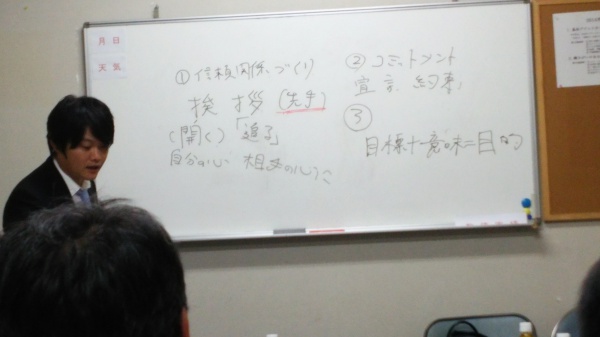 月 日
天気
①信頼関係づくり
挨 拶 (先手)
(開く) 「迫る」
自分の心 相手の心に
②コミットメント
宣言 約束
③
目標+意味=目的